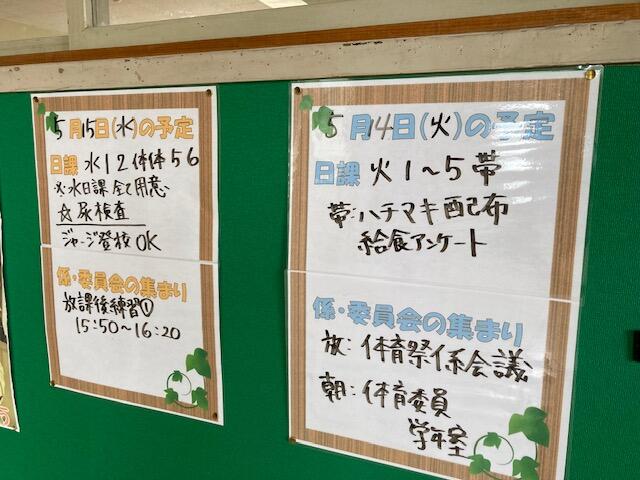 5月15日(水)の予定
日課 水12体体56
※水日課全て用意
☆尿検査
ジャージ登校OK
係・委員会の集まり
放課後練習①
15:50~16:20
5月14日(火)の予定
日課 火1~5帯
帯:ハチマキ配布
給食アンケート
係・委員会の集まり
放:体育祭係会議
朝:体育委員
学年室